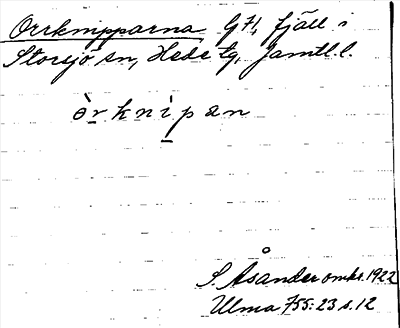 Orrknipparna G71, fjäll i
Storsjö sn, Hede tg, Jämtl. l.
òrknìpan
S. Åsander omkr. 1922
Ulma 755:23 s. 12